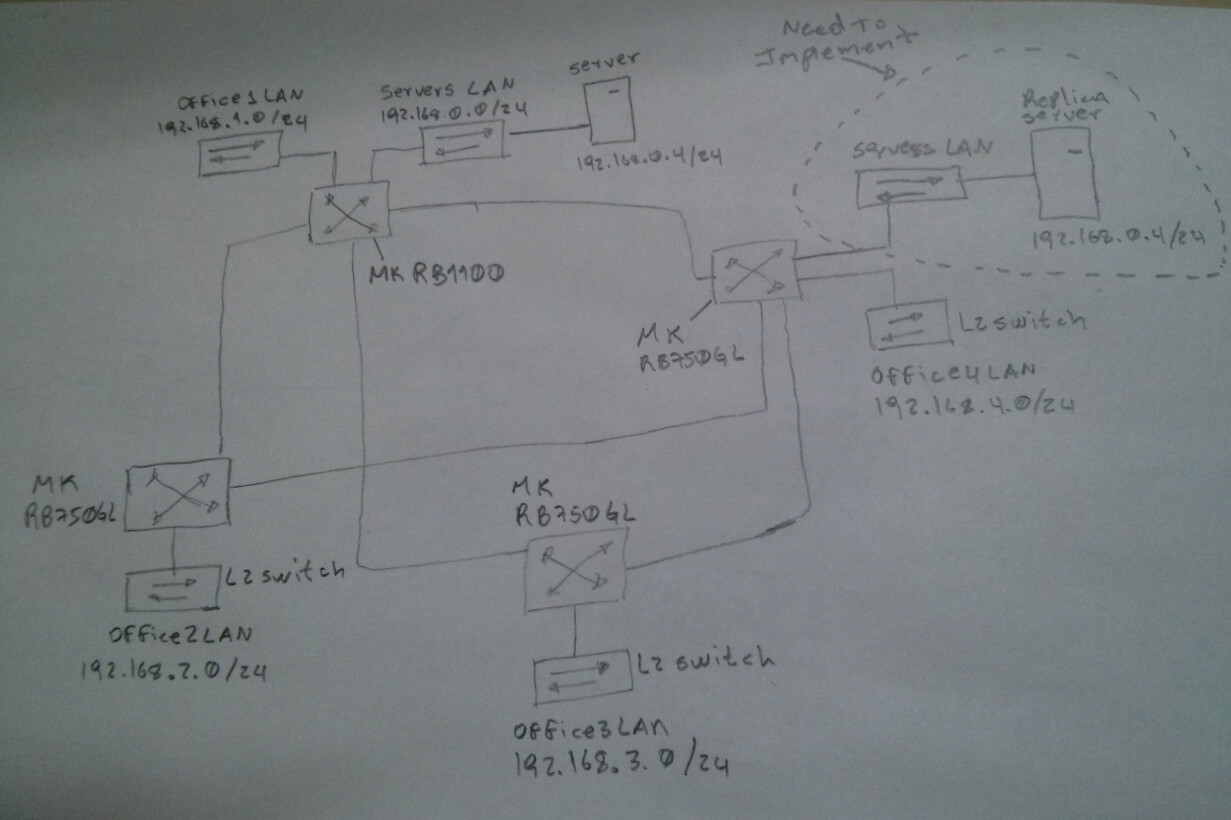 Need To
Implement
Office1LAN
192.168.1.0/24
Servers LAN
192.168.0.0/24
server
192.168.0.4/24
MK RB1100
Replica
server
servess LAN
192.168.0.4/24
MK
RB750GL
L2 switch
Office4LAN
192.168.4.0/24
MK
RB750GL
L2 switch
Office2LAN
192.168.2.0/24
MK
RB750GL
L2 switch
Office3LAN
192.168.3.0/24